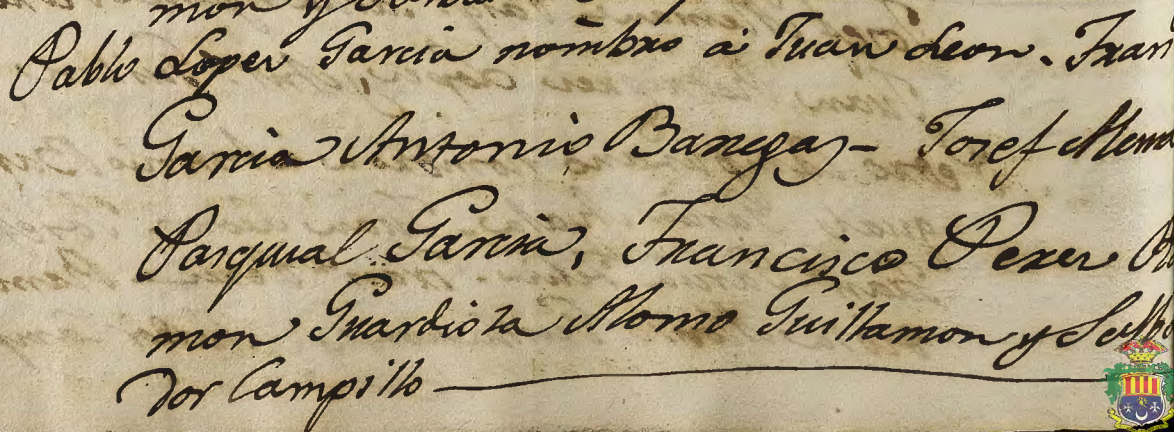 mon y
Pablo Lopez Garcia nombro a Juan Leon. Fran
Garcia Antonio Banegas - Josef Alem
Pasqual Garcia, Francisco Perez
mon Guardiola Alonso Guillamon y Salba
dor Campillo